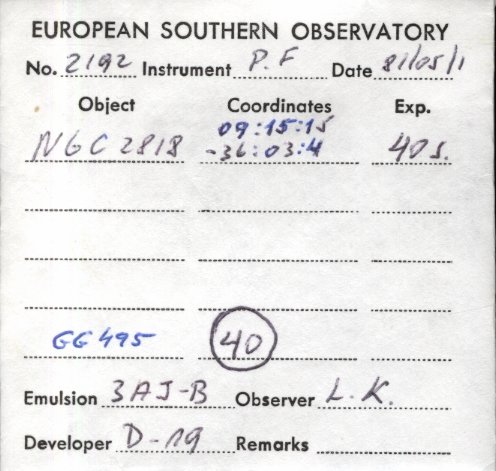 EUROPEAN SOUTHERN OBSERVATORY
No. 2192 Instrument P.F Date 81/05/1
Object Coordinates Exp.
09:15:15
NGC 2818 -36:03:4 40s.
GG495 40
Emulsion 3AJ-B Observer L.K.
Developer D-19 Remarks